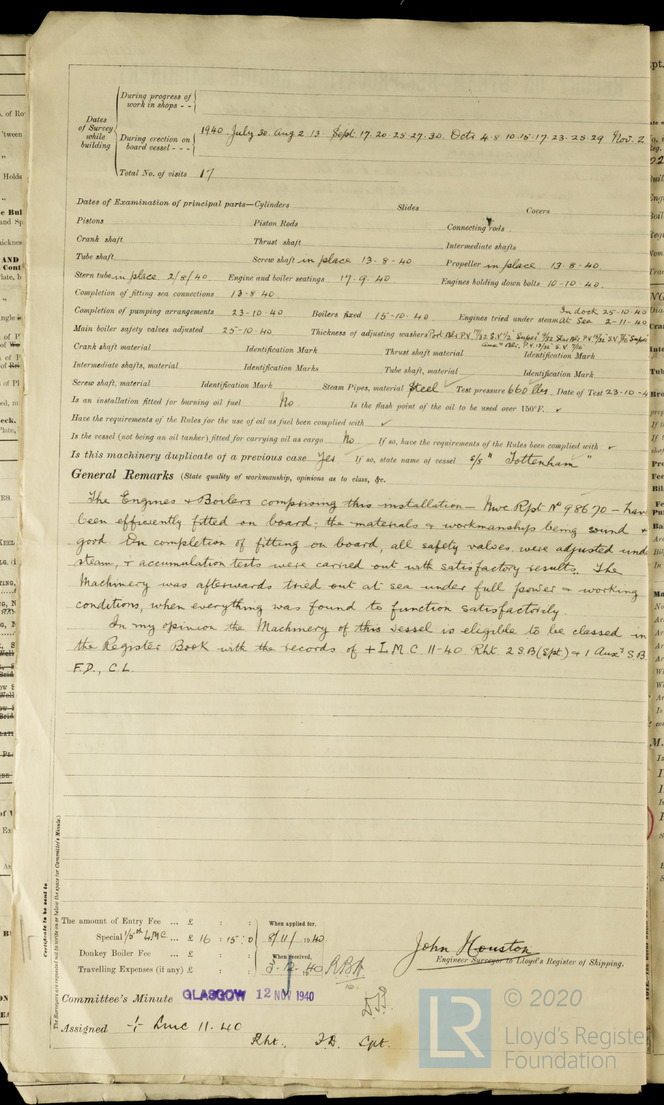 During progress of work in shops - -
Dates of Survey while building
During erection on board vessel - - -
1940. July 30. Aug 2. 13. Sept. 17. 20. 25. 27. 30. Octr 4. 8. 10. 15. 17. 23. 25. 29 Nov. 2
Total No. of visits 17
Dates of Examination of principal parts—Cylinders Slides Covers
Pistons Piston Rods Connecting rods
Crank shaft Thrust shaft Intermediate shafts
Tube shaft Screw shaft in place 13-8-40 Propeller in place 13-8-40
Stern tube in place 2/8/40 Engine and boiler seatings 17-9-40 Engines holding down bolts 10-10-40.
Completion of fitting sea connections 13-8-40
Completion of pumping arrangements 23-10-40 Boilers fixed 15-10-40 Engines tried under steam In dock 25-10-40 At Sea 2-11-40
Main boiler safety valves adjusted 25-10-40 Thickness of adjusting washers
Crank shaft material Identification Mark Thrust shaft material Identification Mark
Intermediate shafts, material Identification Marks Tube shaft, material Identification Mark
Screw shaft, material Identification Mark Steam Pipes, material Steel Test pressure 660 lbs. Date of Test 23-10-4
Is an installation fitted for burning oil fuel No Is the flash point of the oil to be used over 150°F. ✓
Have the requirements of the Rules for the use of oil as fuel been complied with ✓
Is the vessel (not being an oil tanker) fitted for carrying oil as cargo No If so, have the requirements of the Rules been complied with ✓
Is this machinery duplicate of a previous case Yes If so, state name of vessel s/s "Tottenham"
General Remarks (State quality of workmanship, opinions as to class, &c.
The Engines & Boilers comprising this installation — Nwc Rpt No 98670 — have
been efficiently fitted on board; the materials & workmanship being sound &
good. On completion of fitting on board, all safety valves were adjusted und
steam, & accumulation tests were carried out with satisfactory results. The
Machinery was afterwards tried out at sea under full power & working
conditions, when everything was found to function satisfactorily.
In my opinion the Machinery of this vessel is eligible to be classed in
the Register Book with the records of + L.M.C. 11-40. Rht. 2 S.B (Spt.) & 1 Auxy S.B.
F.D., C.L.
Certificate to be sent to
The amount of Entry Fee ... £ : : When applied for,
Special 1/5th LMC ... £ 16 : 15 : 0 8/11/1940
Donkey Boiler Fee ... £ : : When received,
Travelling Expenses (if any) £ : : 3.12.40
John Houston
Engineer Surveyor to Lloyd's Register of Shipping.
Committee's Minute GLASGOW 12 NOV 1940
Assigned + Lmc 11.40
Rht. F.D. Cpt.
© 2020
LR
Lloyd's Registe
Foundation